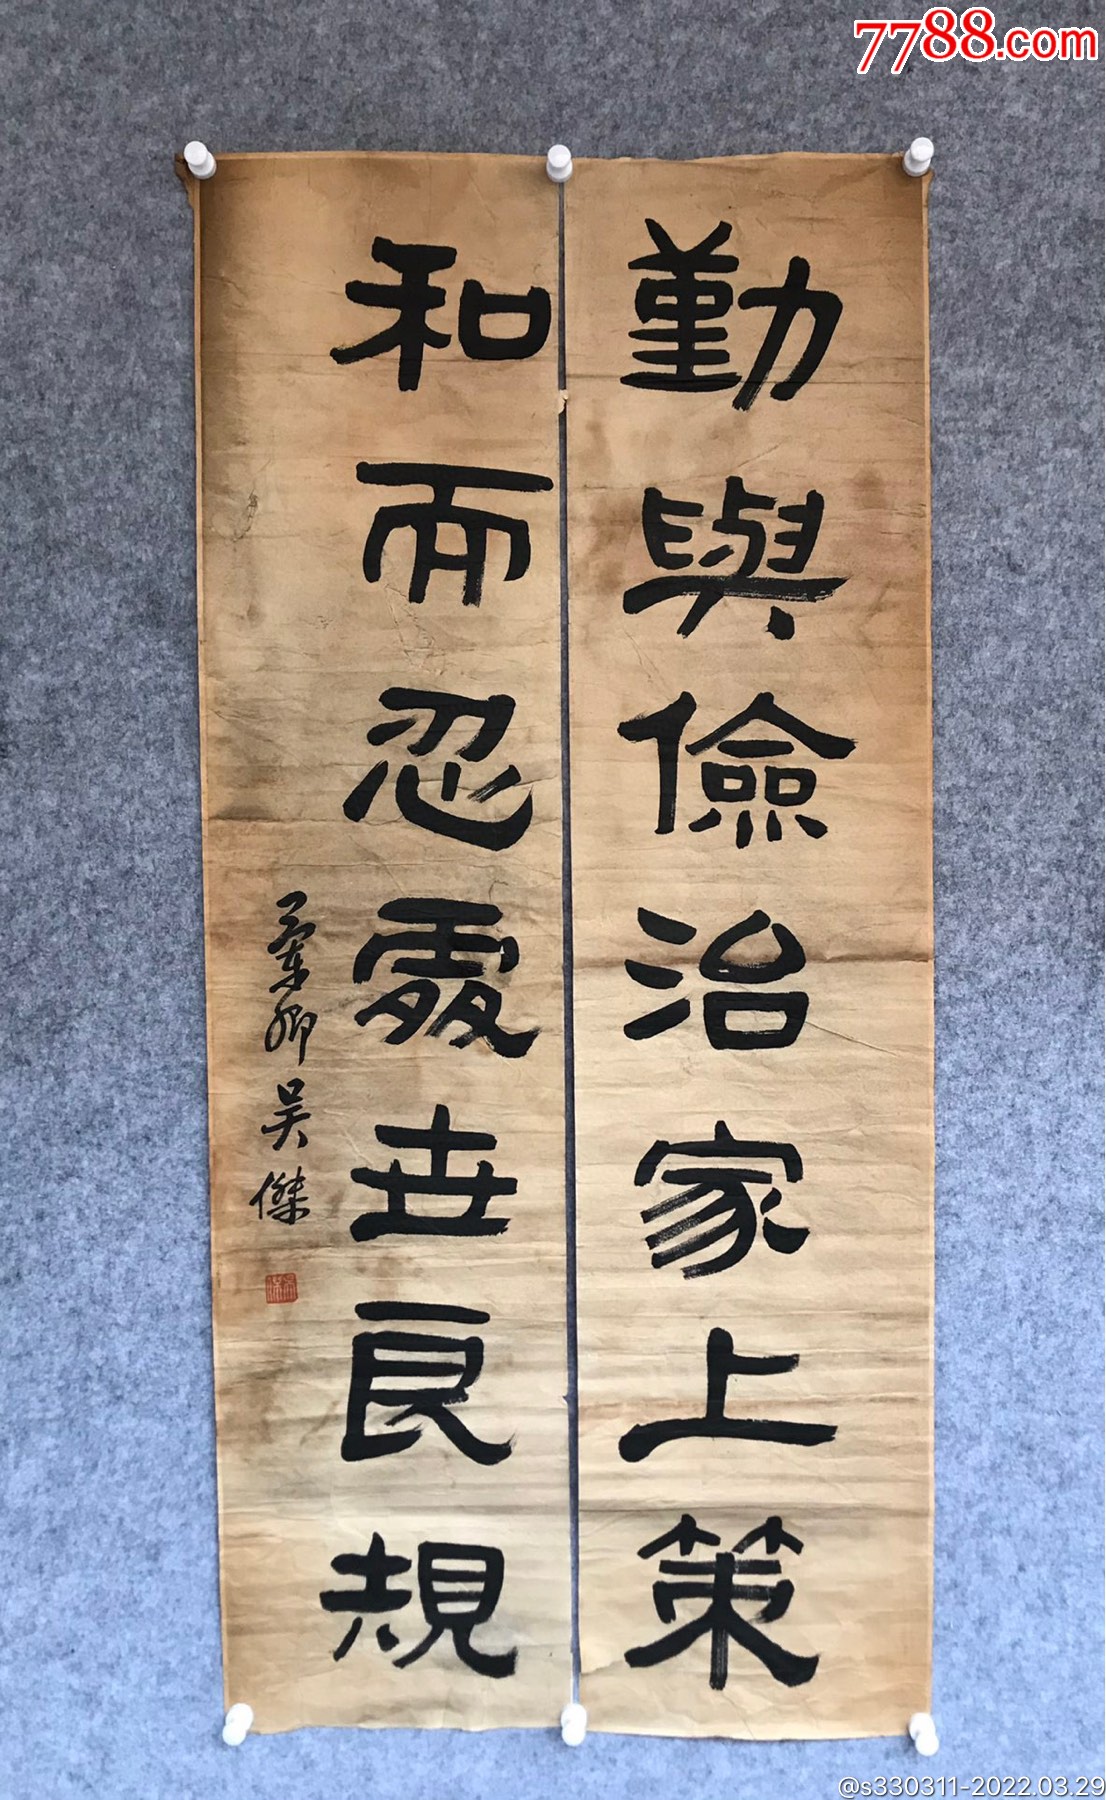 7788.com
勤與儉治家上策
和而忍處世良規
蘭卿吴傑
@s330311-2022.03.29